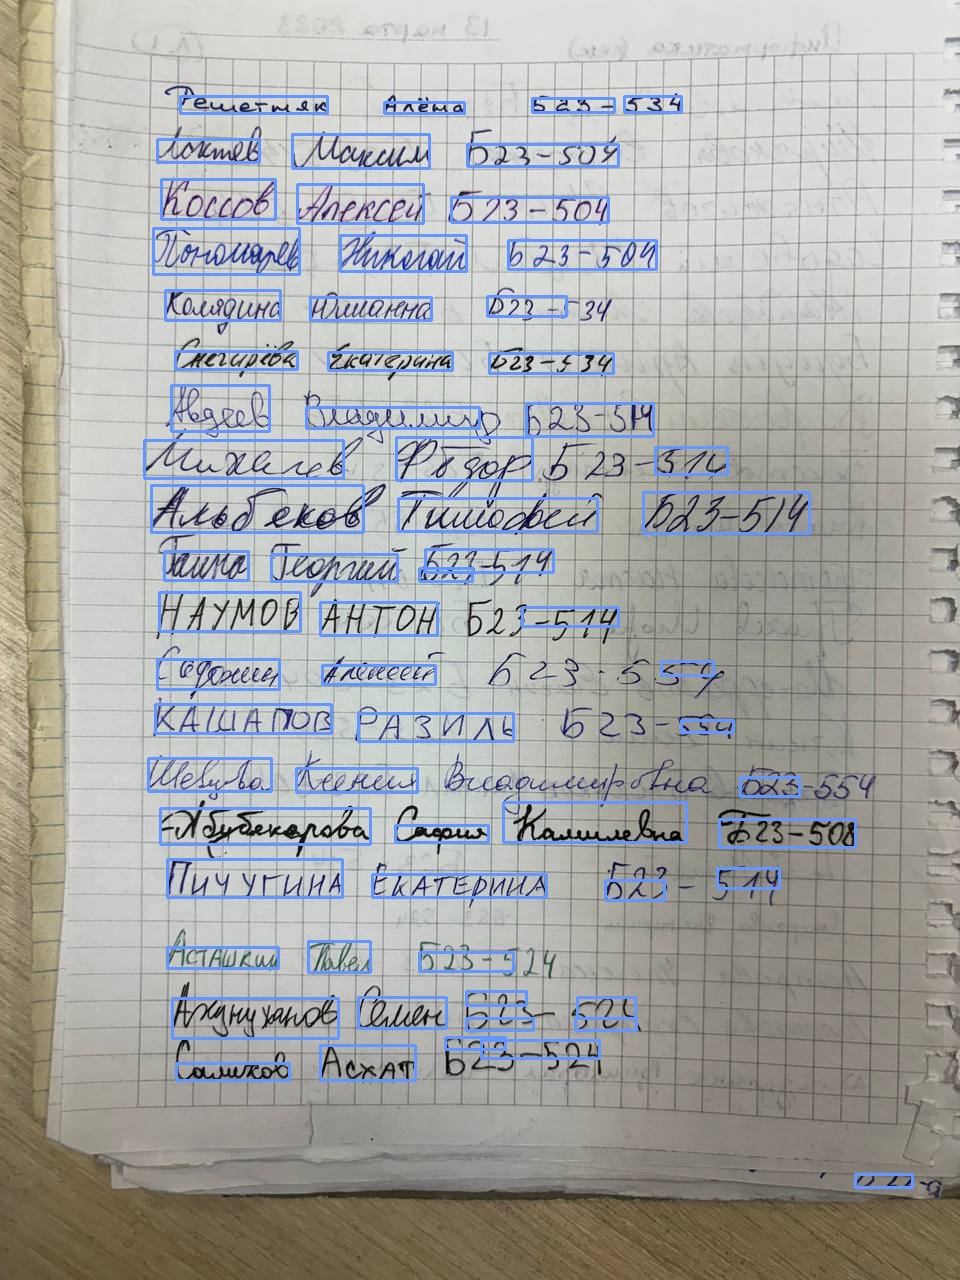 Решетняк Алёна Б23-534
Локтев Максим Б23-504
Коссов Алексей Б23-504
Пономарев Николай Б23-504
Колядина Юлианна Б23-534
Снегирёва Екатерина Б23-534
Авдеев Владимир Б23-514
Михалев Фёдор Б23-514
Альбеков Тимофей Б23-514
Ганна Георгий Б23-514
НАУМОВ АНТОН Б23-514
Садохин Алексей Б23-554
КАШАПОВ РАЗИЛЬ Б23-554
Шевцова Ксения Владимировна Б23-554
Абубекерова София Камилевна Б23-508
ПИЧУГИНА ЕКАТЕРИНА Б23-514
Асташкин Павел Б23-524
Ахунуханов Семен Б23-524
Салихов Асхат Б23-524